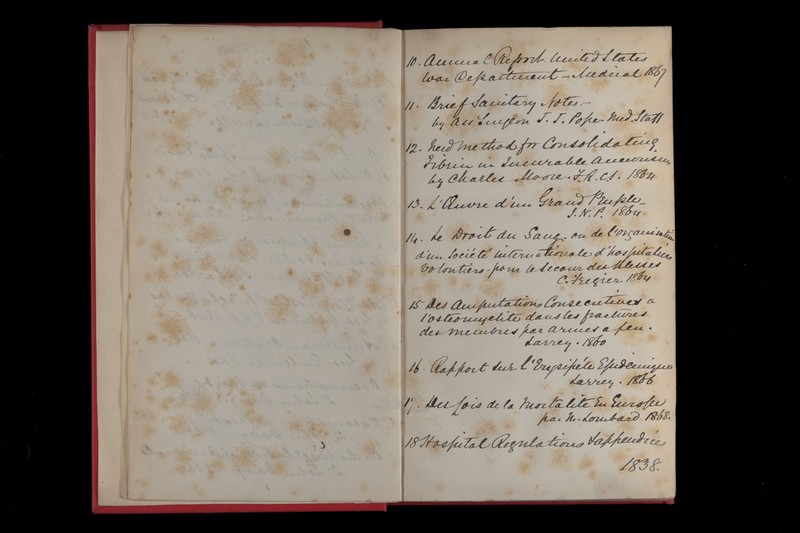 10. Annual Report. United States
War Department - Medical 1867
11. Brief Sanitary Notes. -
by Asst Surgeon J. J. Pope. Med. Staff
12. New method for Consolidating
Fibrin in Incurable Aneurisms
by Charles Moore. F.R.C.S. 1864
13. L'Œuvre d'un Grand Peuple -
J.N.P. 1864
14. Le Droit du Sang, ou de l'organisation
d'un Société internationale d'hospitaliers
Volontiers pour le Secour des Blessés
C. 1864
15 Des Amputations Consecutives a
l'osteomyelite dans les fractures
des membres par armes a feu.
Larrey. 1860
16. Rapport sur l'Erysipéle Epidemique
Larrey. 1866
17. Des Lois de la Mortalite En Europe
par M. Lombard 1868.
18 Hospital Regulations & appendices
1838.